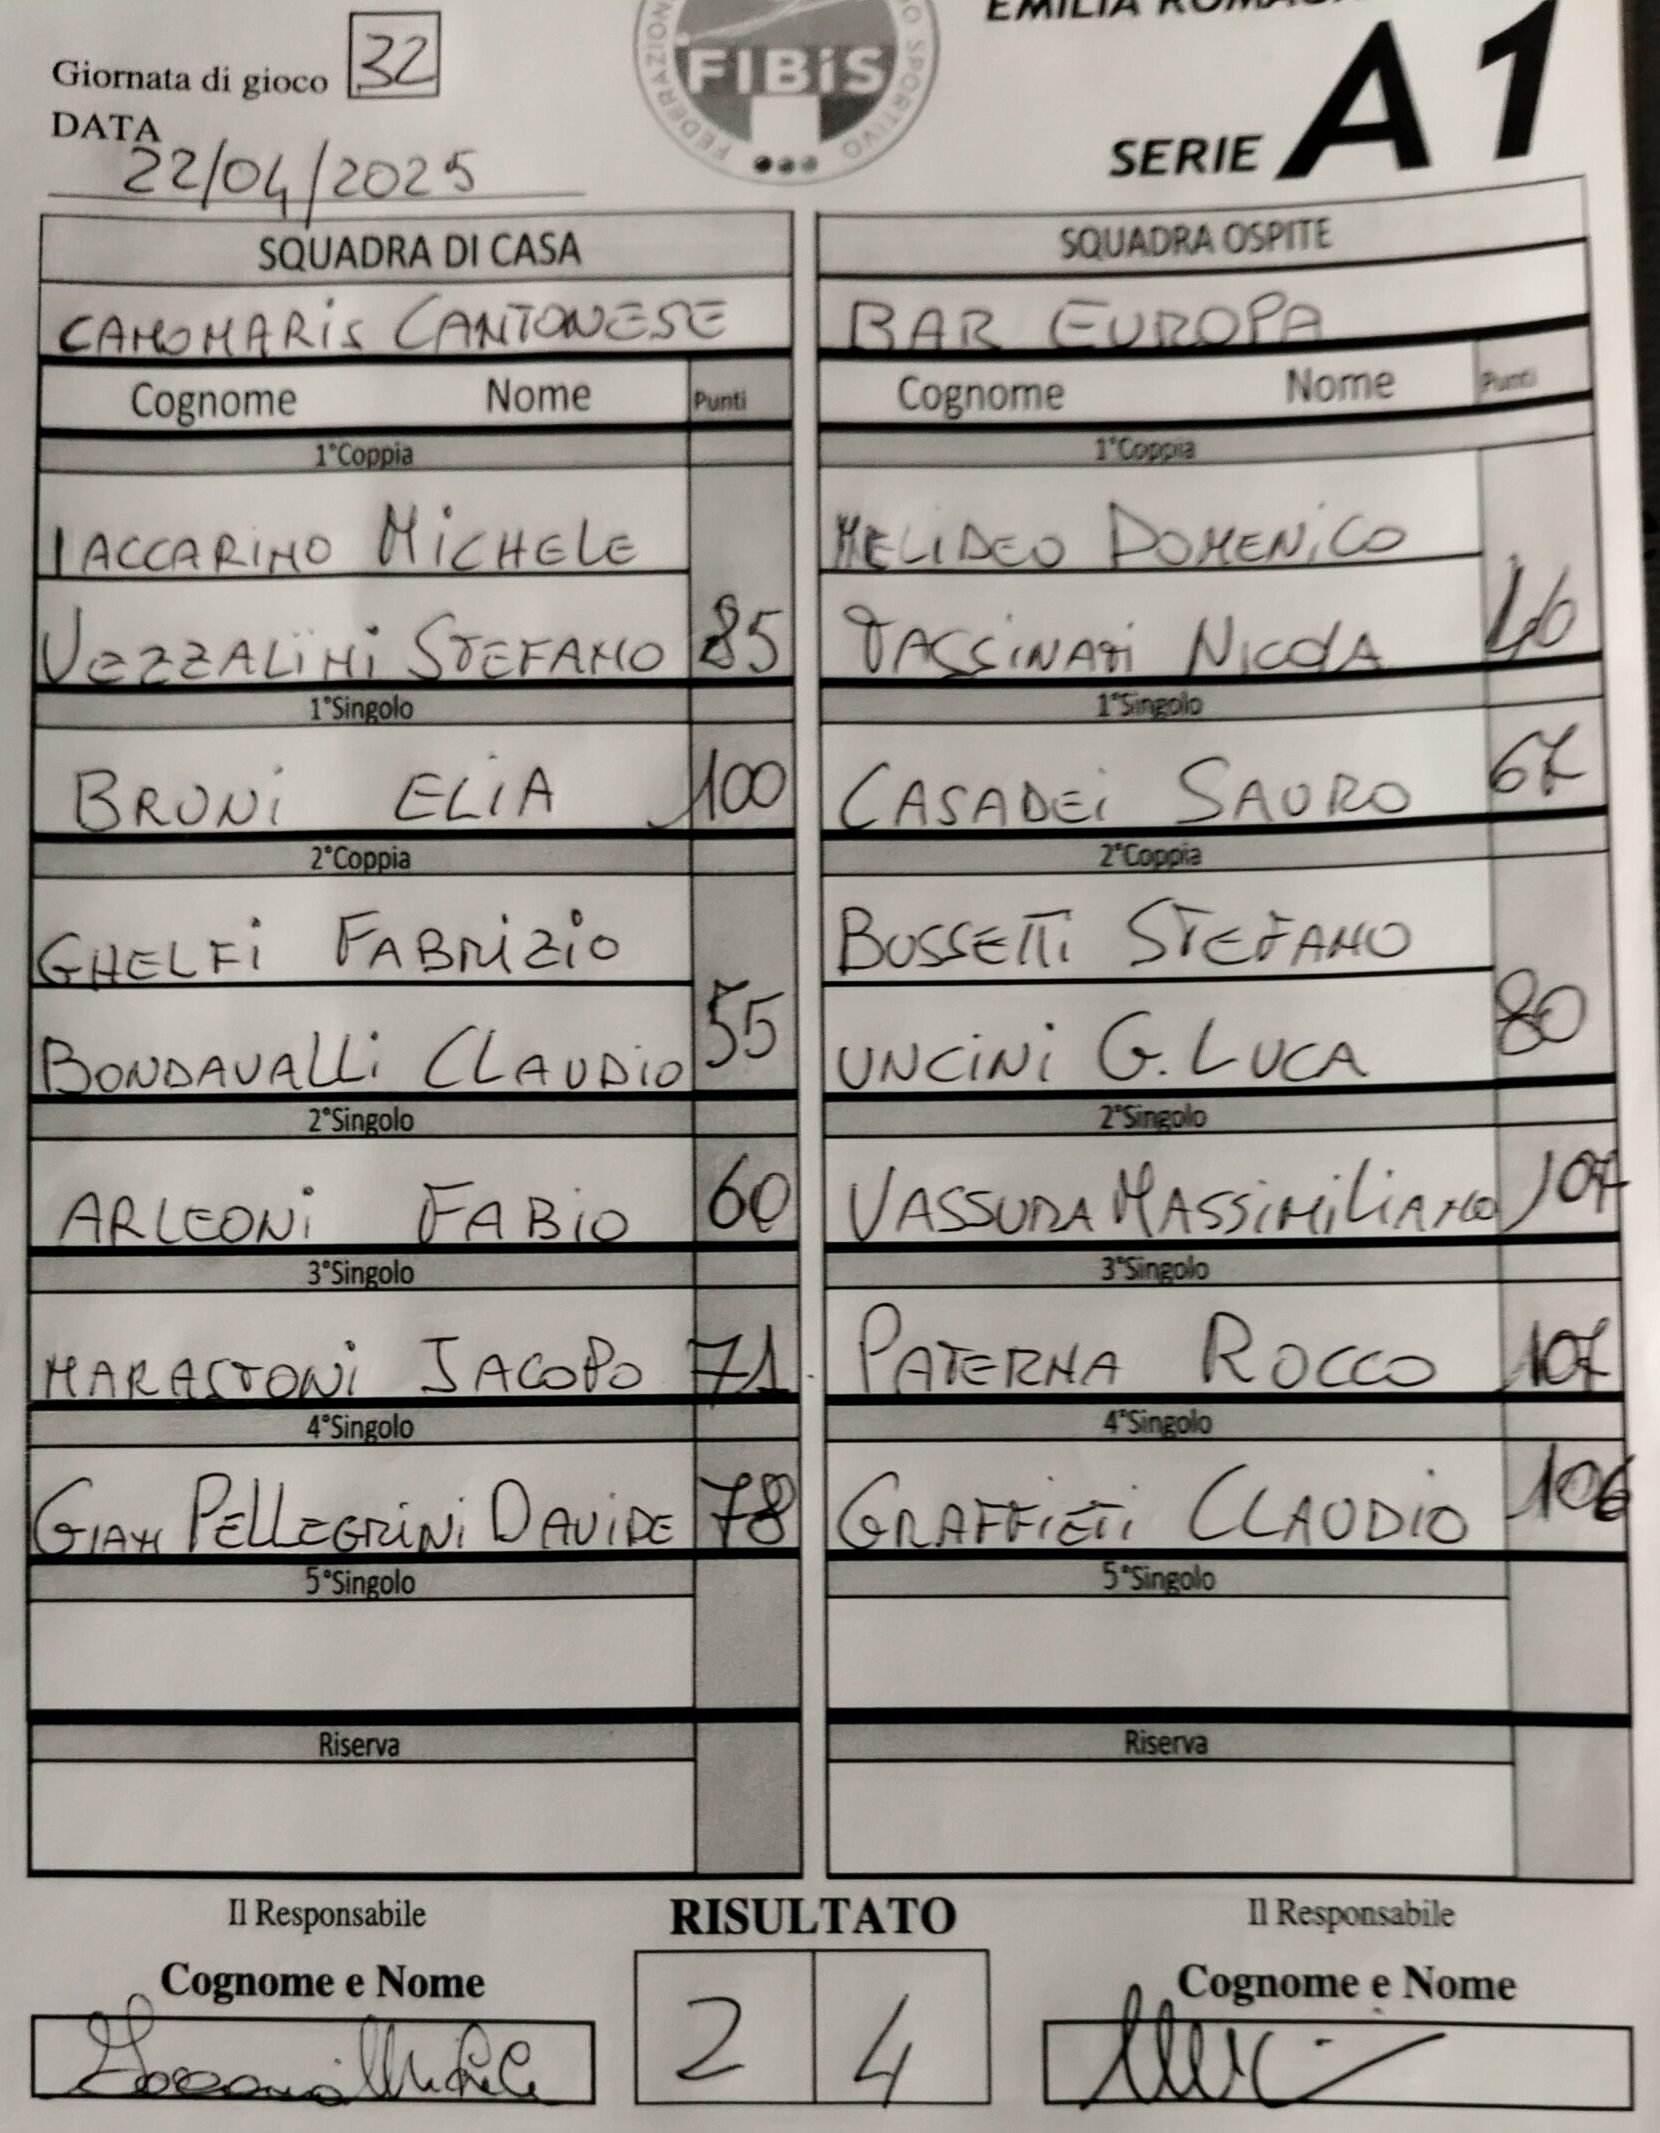 EMILIA ROMAGNA
Giornata di gioco 32
FIBiS
FEDERAZIONE
SPORTIVO
SERIE A1
DATA
22/04/2025
SQUADRA DI CASA
SQUADRA OSPITE
CAMOMARIS CANTONESE
BAR EUROPA
Cognome Nome Punti
Cognome Nome Punti
1°Coppia
1°Coppia
IACCARINO MICHELE
MELIDEO DOMENICO
VEZZALINI STEFANO 85
TASSINARI NICOLA 46
1°Singolo
1°Singolo
BRUNI ELIA 100
CASADEI SAURO 67
2°Coppia
2°Coppia
GHELFI FABRIZIO
BUSSETTI STEFANO
BONDAVALLI CLAUDIO 55
UNCINI G. LUCA 80
2°Singolo
2°Singolo
ARLEONI FABIO 60
VASSURA MASSIMILIANO 107
3°Singolo
3°Singolo
MARASTONI JACOPO 71
PATERNA ROCCO 107
4°Singolo
4°Singolo
GIAN PELLEGRINI DAVIDE 78
GRAFFIETI CLAUDIO 106
5°Singolo
5°Singolo
Riserva
Riserva
Il Responsabile
RISULTATO
Il Responsabile
Cognome e Nome
Cognome e Nome
2 4